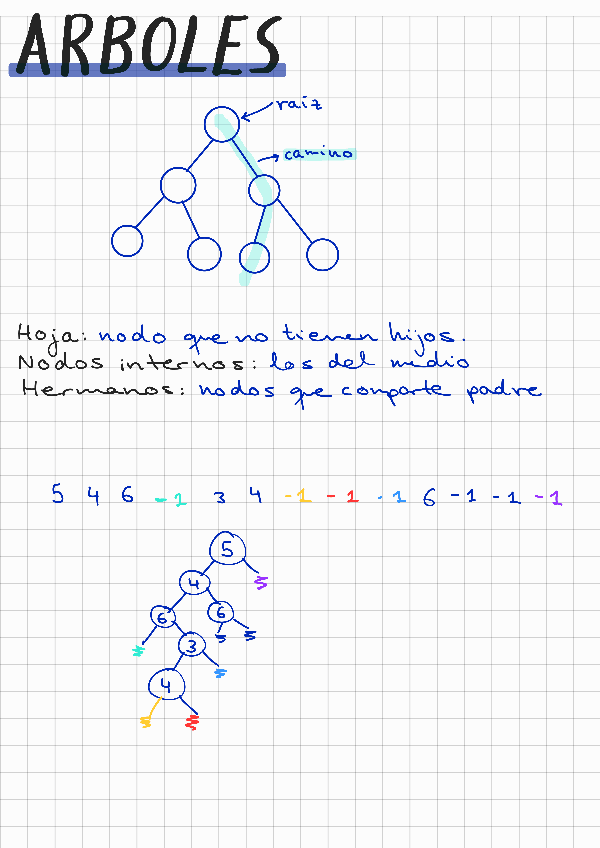 ARBOLES
raiz
camino
Hoja: nodo que no tienen hijos.
Nodos internos: los del medio
Hermanos: nodos que comparte padre
5 4 6 -1 3 4 -1 -1 -1 6 -1 -1 -1
5
4
6 6
3
4